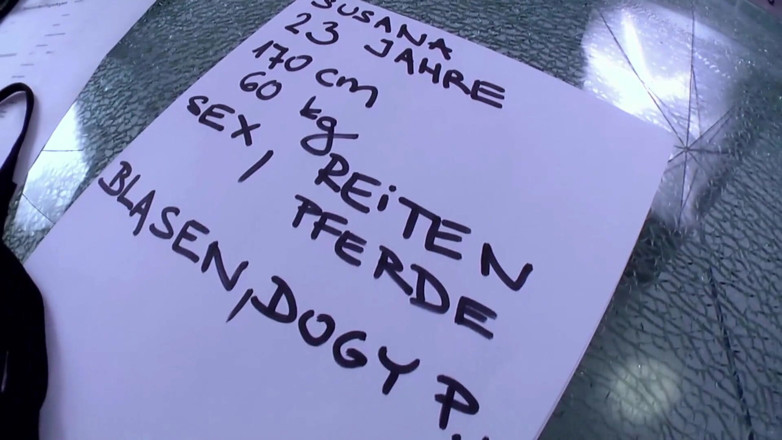 SUSANA
23 JAHRE
170 cm
60 kg
SEX, REITEN
PFERDE
BLASEN, DOGY P.